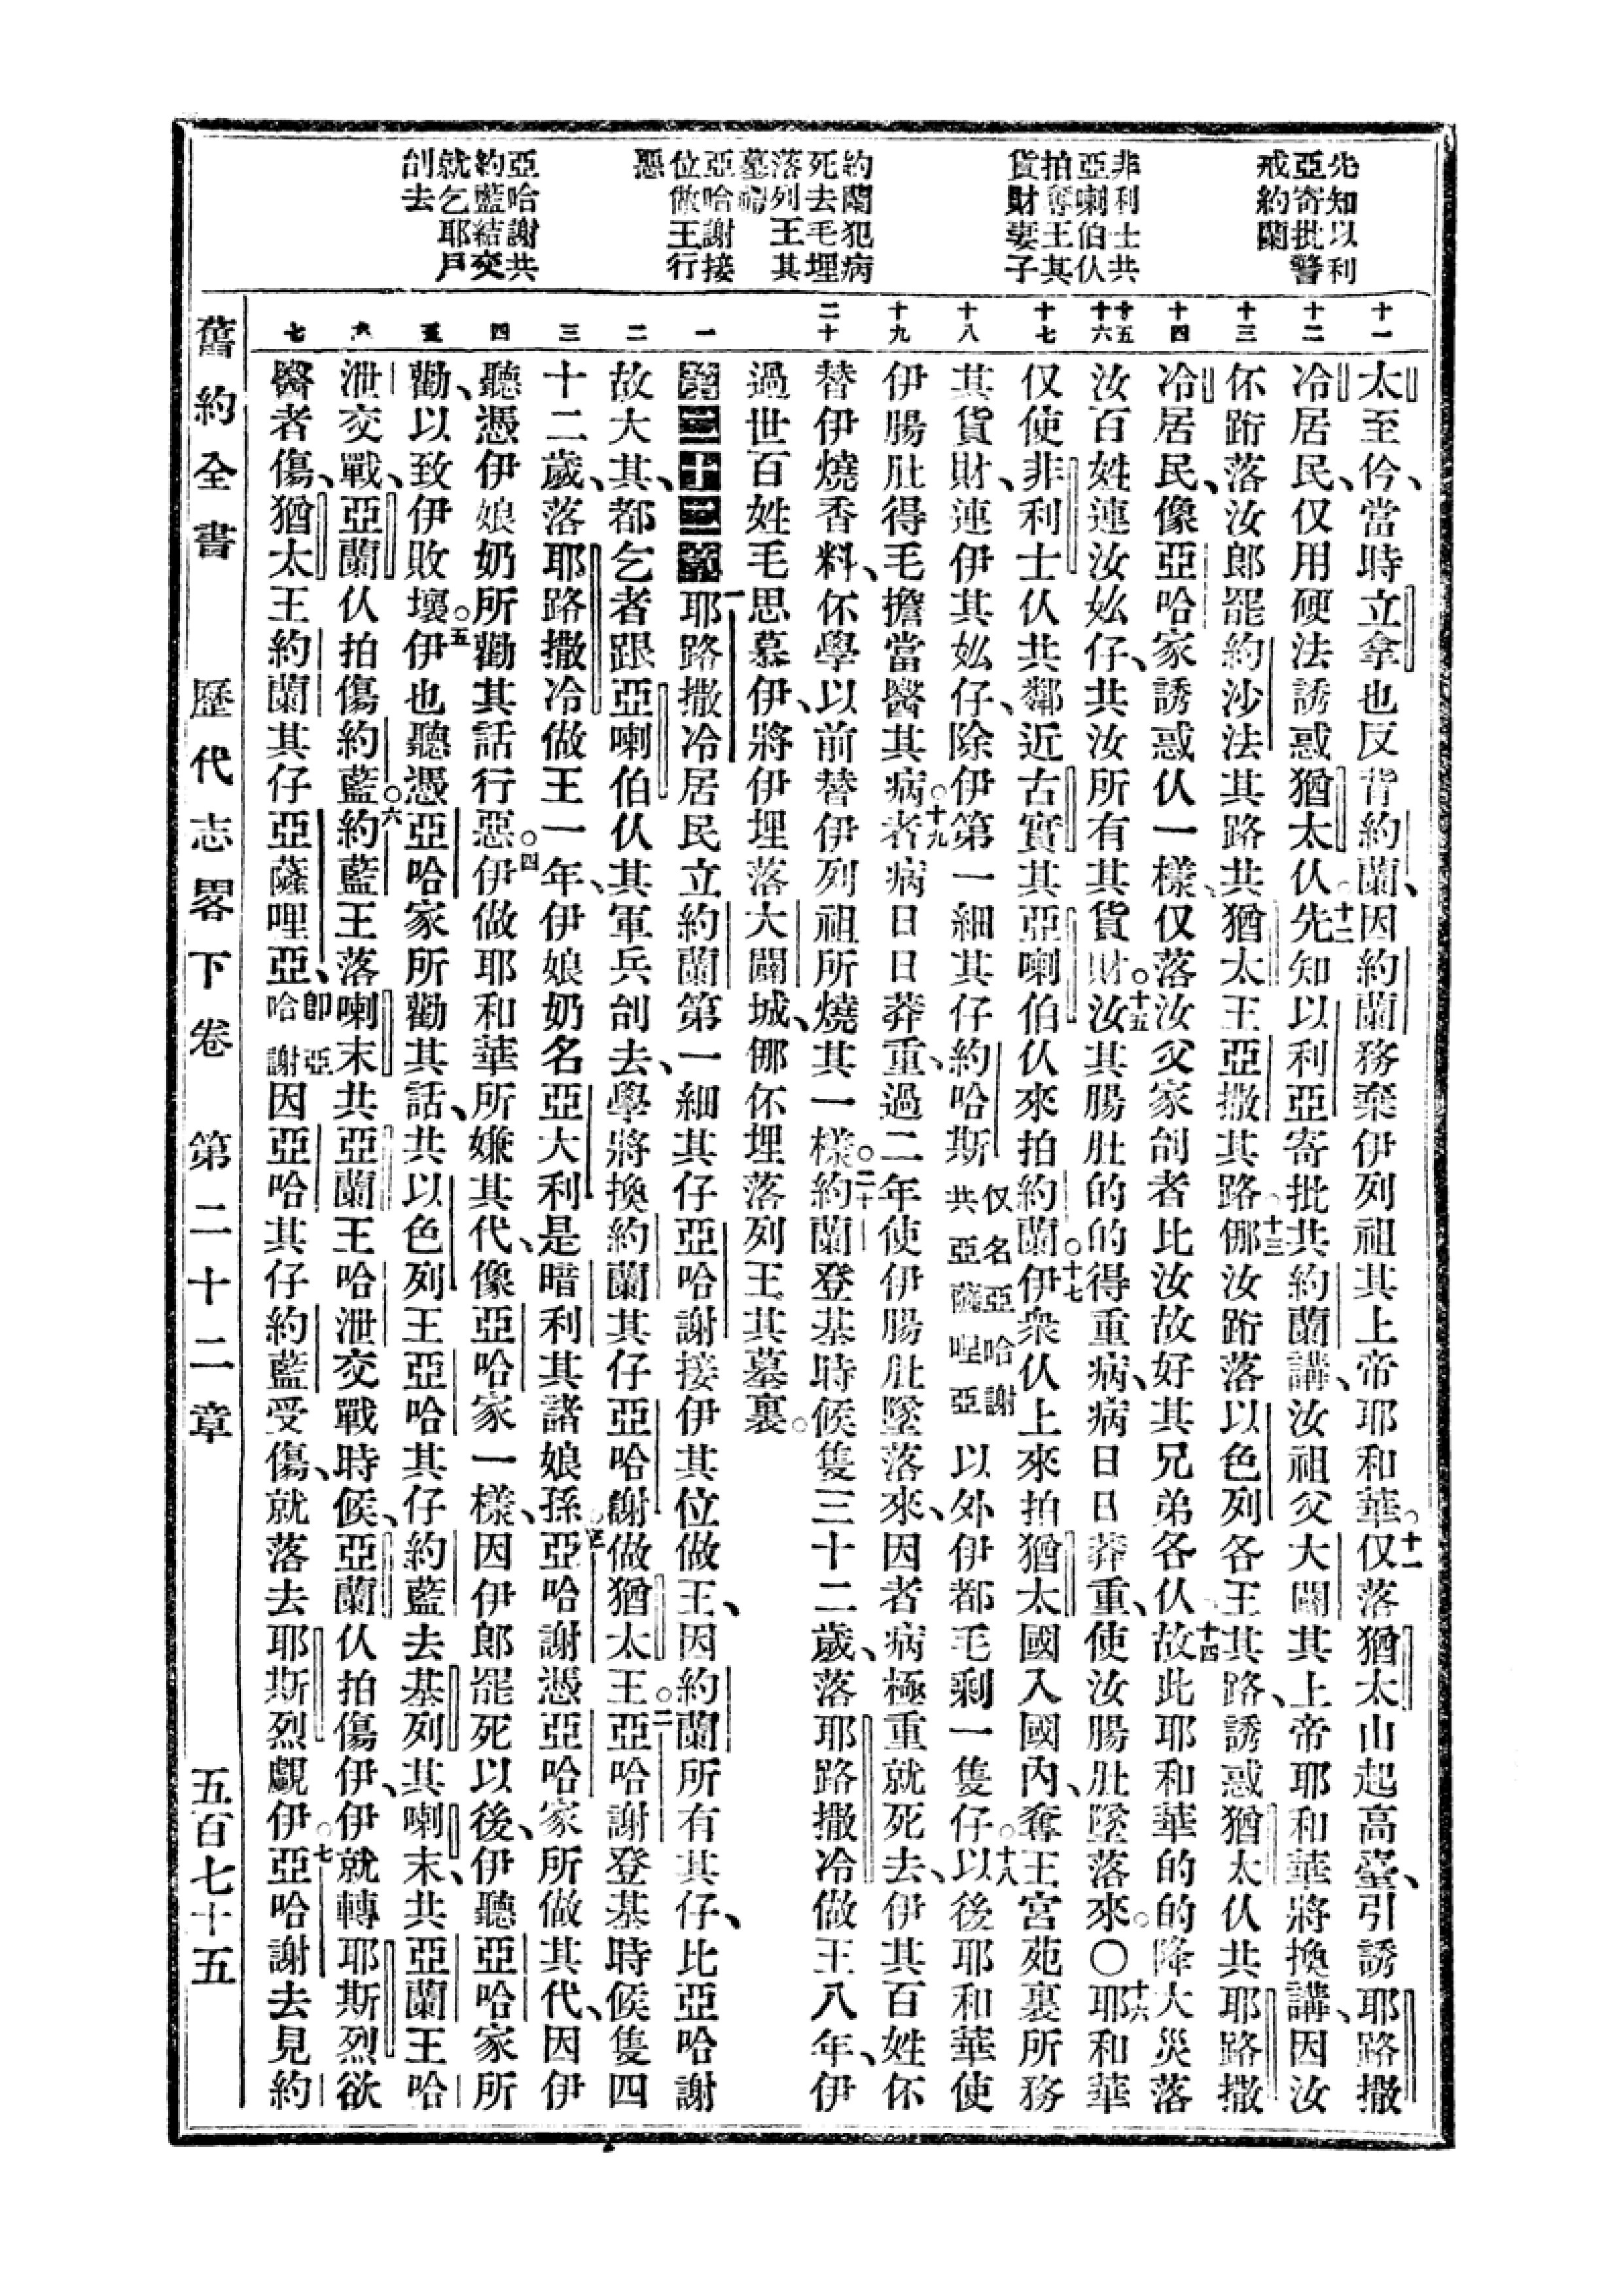 先知以利
亞寄批警
戒約蘭
非利士共
亞喇伯仸
拍奪王其
貨財妻子
約蘭犯病
死去毛埋
落列王其
墓裏
亞哈謝接
位做王行
惡
亞哈謝共
約藍結交
就乞耶戶
刣去
十一 十二 十三 十四 十五 十六 十七 十八 十九 二十 一 二 三 四 五 六 七
太至仱、當時立拿也反背約蘭、因約蘭務棄伊列祖其上帝耶和華。十一仅落猶太山起高臺、引誘耶路撒
冷居民、仅用硬法誘惑猶太仸。十二先知以利亞寄批共約蘭講、汝祖父大闢其上帝耶和華將換講、因汝
伓跲落汝郎罷約沙法其路共猶太王亞撒其路。十三倻汝跲落以色列各王其路、誘惑猶太仸共耶路撒
冷居民、像亞哈家誘惑仸一樣、仅落汝父家刣者比汝故好其兄弟各仸。十四故此耶和華的的降大災落
汝百姓連汝妐仔、共汝所有其貨財。十五汝其腸肚的的得重病、病日日莽重、使汝腸肚墜落來。〇十六耶和華
仅使非利士仸共鄰近古實其亞喇伯仸來拍約蘭。十七伊衆仸上來拍猶太國入國內、奪王宮苑裏所務
其貨財、連伊其妐仔、除伊第一細其仔約哈斯仅名亞哈謝共亞薩哩亞以外伊都毛剩一隻仔。十八以後耶和華使
伊腸肚得毛擔當醫其病。十九者病日日莽重、過二年使伊腸肚墜落來、因者病極重就死去、伊其百姓伓
替伊燒香料、伓學以前替伊列祖所燒其一樣。二十約蘭登基時候隻三十二歲、落耶路撒冷做王八年、伊
過世百姓毛思慕伊、將伊埋落大闢城、倻伓埋落列王其墓裏。
第二十二章 一耶路撒冷居民立約蘭第一細其仔亞哈謝接伊其位做王、因約蘭所有其仔、比亞哈謝
故大其、都乞者跟亞喇伯仸其軍兵刣去、學將換約蘭其仔亞哈謝做猶太王。二亞哈謝登基時候隻四
十二歲、落耶路撒冷做王一年、伊娘奶名亞大利是暗利其諸娘孫。三亞哈謝憑亞哈家所做其代、因伊
聽憑伊娘奶所勸其話行惡。四伊做耶和華所嫌其代、像亞哈家一樣、因伊郎罷死以後、伊聽亞哈家所
勸、以致伊敗壞。五伊也聽憑亞哈家所勸其話、共以色列王亞哈其仔約藍去基列其喇末、共亞蘭王哈
泄交戰、亞蘭仸拍傷約藍。六約藍王落喇末共亞蘭王哈泄交戰時候、亞蘭仸拍傷伊、伊就轉耶斯烈欲
醫者傷、猶太王約蘭其仔亞薩哩亞、卽亞哈謝因亞哈其仔約藍受傷、就落去耶斯烈覷伊。七亞哈謝去見約
舊約全書 歷代志畧下卷 第二十二章 五百七十五